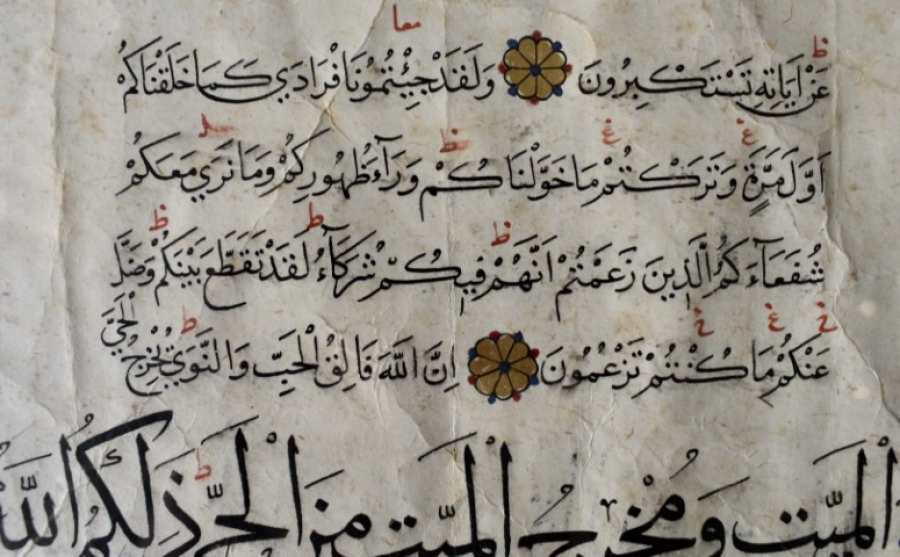 معا
عَنْ اٰيَاتِهِ تَسْتَكْبِرُونَ وَلَقَدْ جِئْتُمُونَا فُرَادَي كَمَا خَلَقْنَاكُمْ
اَوَّلَ مَرَّةٍ وَتَرَكْتُمْ مَا خَوَّلْنَاكُمْ وَرَآءَ ظُهُورِكُمْ وَمَا نَرَي مَعَكُمْ
شُفَعَآءَكُمُ الَّذِينَ زَعَمْتُمْ اَنَّهُمْ فِيكُمْ شُرَكَآءُ لَقَدْ تَقَطَّعَ بَيْنَكُمْ وَضَلَّ
عَنْكُمْ مَا كُنْتُمْ تَزْعُمُونَ اِنَّ اللَّهَ فَالِقُ الْحَبِّ وَالنَّوَي يُخْرِجُ الْحَيَّ
الْمَيِّتِ وَمُخْرِجُ الْمَيِّتِ مِنَ الْحَيِّ ذَلِكُمُ اللَّهُ